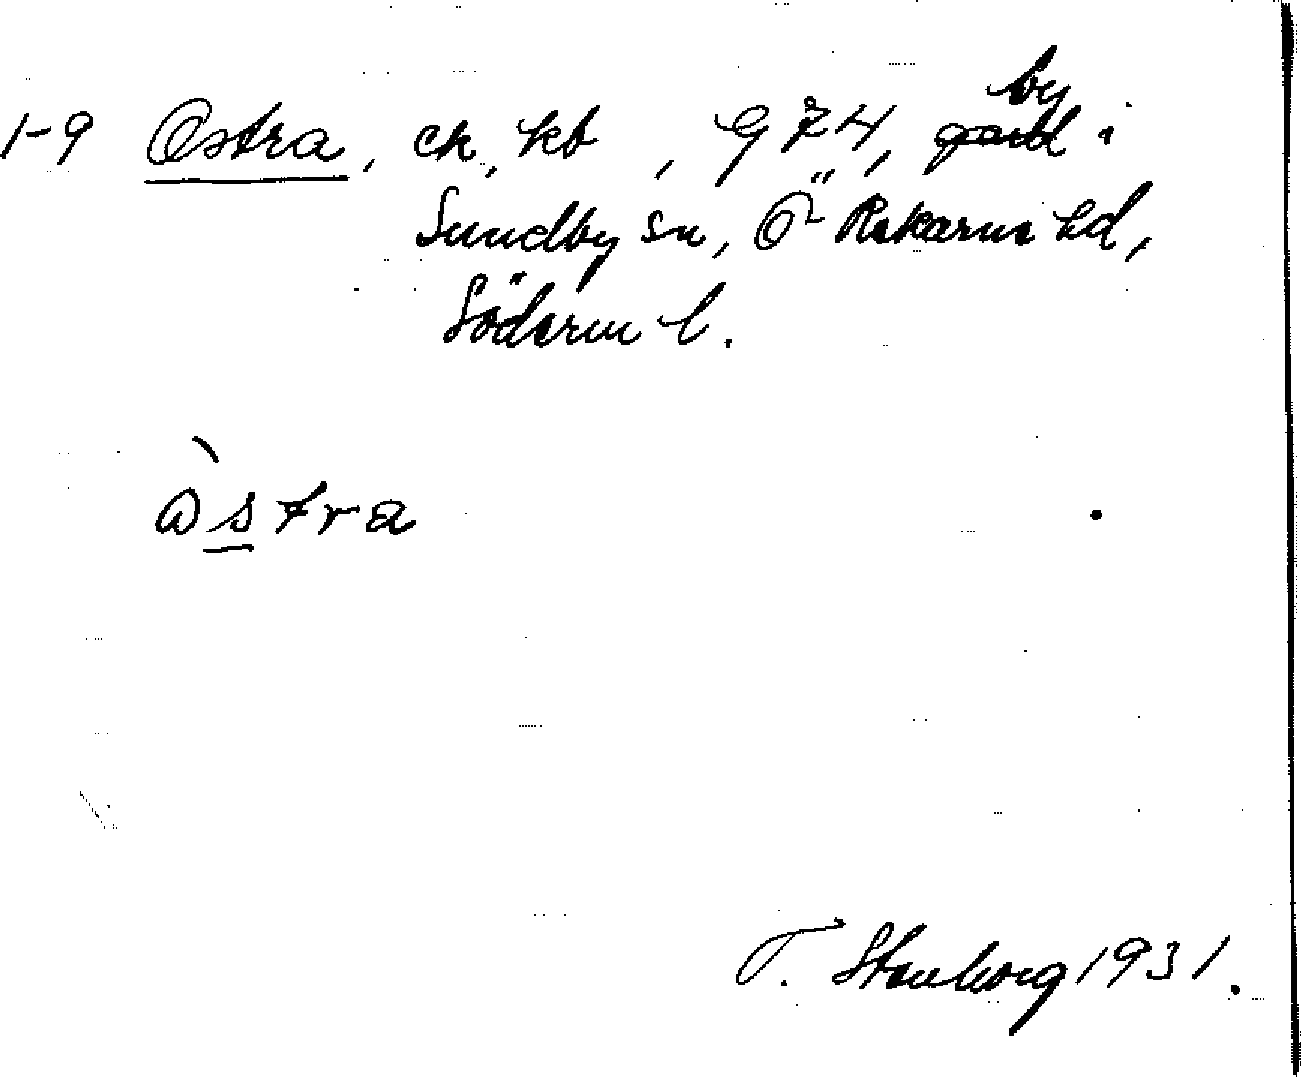 1-9 Östra, ek, kb, G 74, by
gård i
Sundby sn, Ö Rekarne hd,
Söderm l.
östra
T. Stenborg 1931.